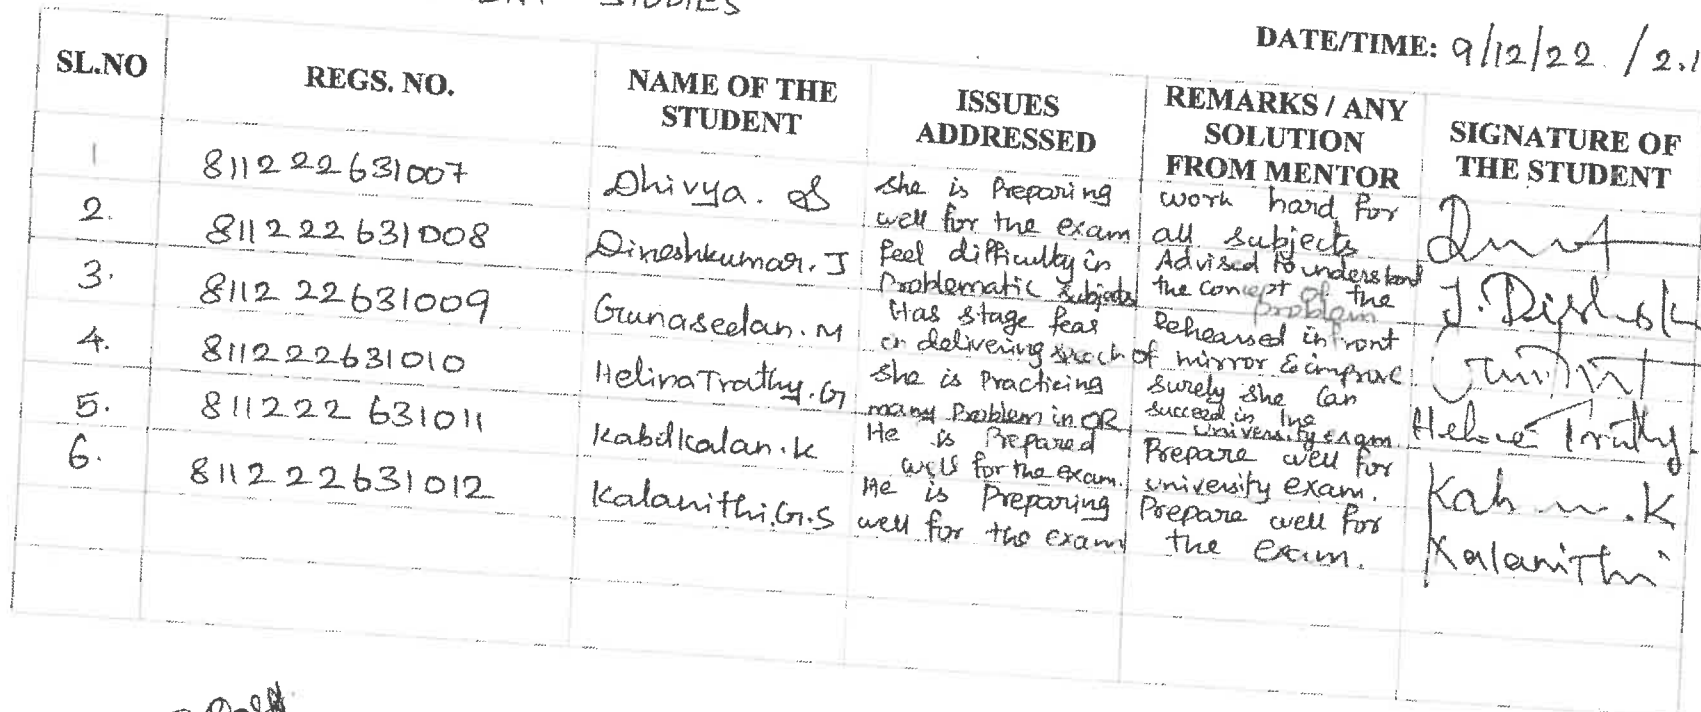 STUDIES
DATE/TIME: 9/12/22 / 2.1
SL.NO
REGS. NO.
NAME OF THE
STUDENT
ISSUES
ADDRESSED
REMARKS / ANY
SOLUTION
FROM MENTOR
SIGNATURE OF
THE STUDENT
1
811222631007
Dhivya. S
She is Preparing
well for the exam
work hard for
all subjects
2.
811222631008
Dineshkumar. J
Feel difficulty in
Problematic subjects
Advised to understand
the concept of the
problem
3.
811222631009
Gunaseelan. M
Has stage fear
in delivering speech
Rehearsed infront
of mirror & improve
4.
811222631010
HelinaTrathy. G
She is Practicing
many Problem in OR
Surely she can
succeed in the
University exam
Helina Trathy.
5.
811222631011
Kabdkalan. K
He is Prepared
well for the exam.
Prepare well for
university exam.
6.
811222631012
Kalanithi. G.S
He is Preparing
well for the exam
Prepare well for
the exam.
Kalanithi